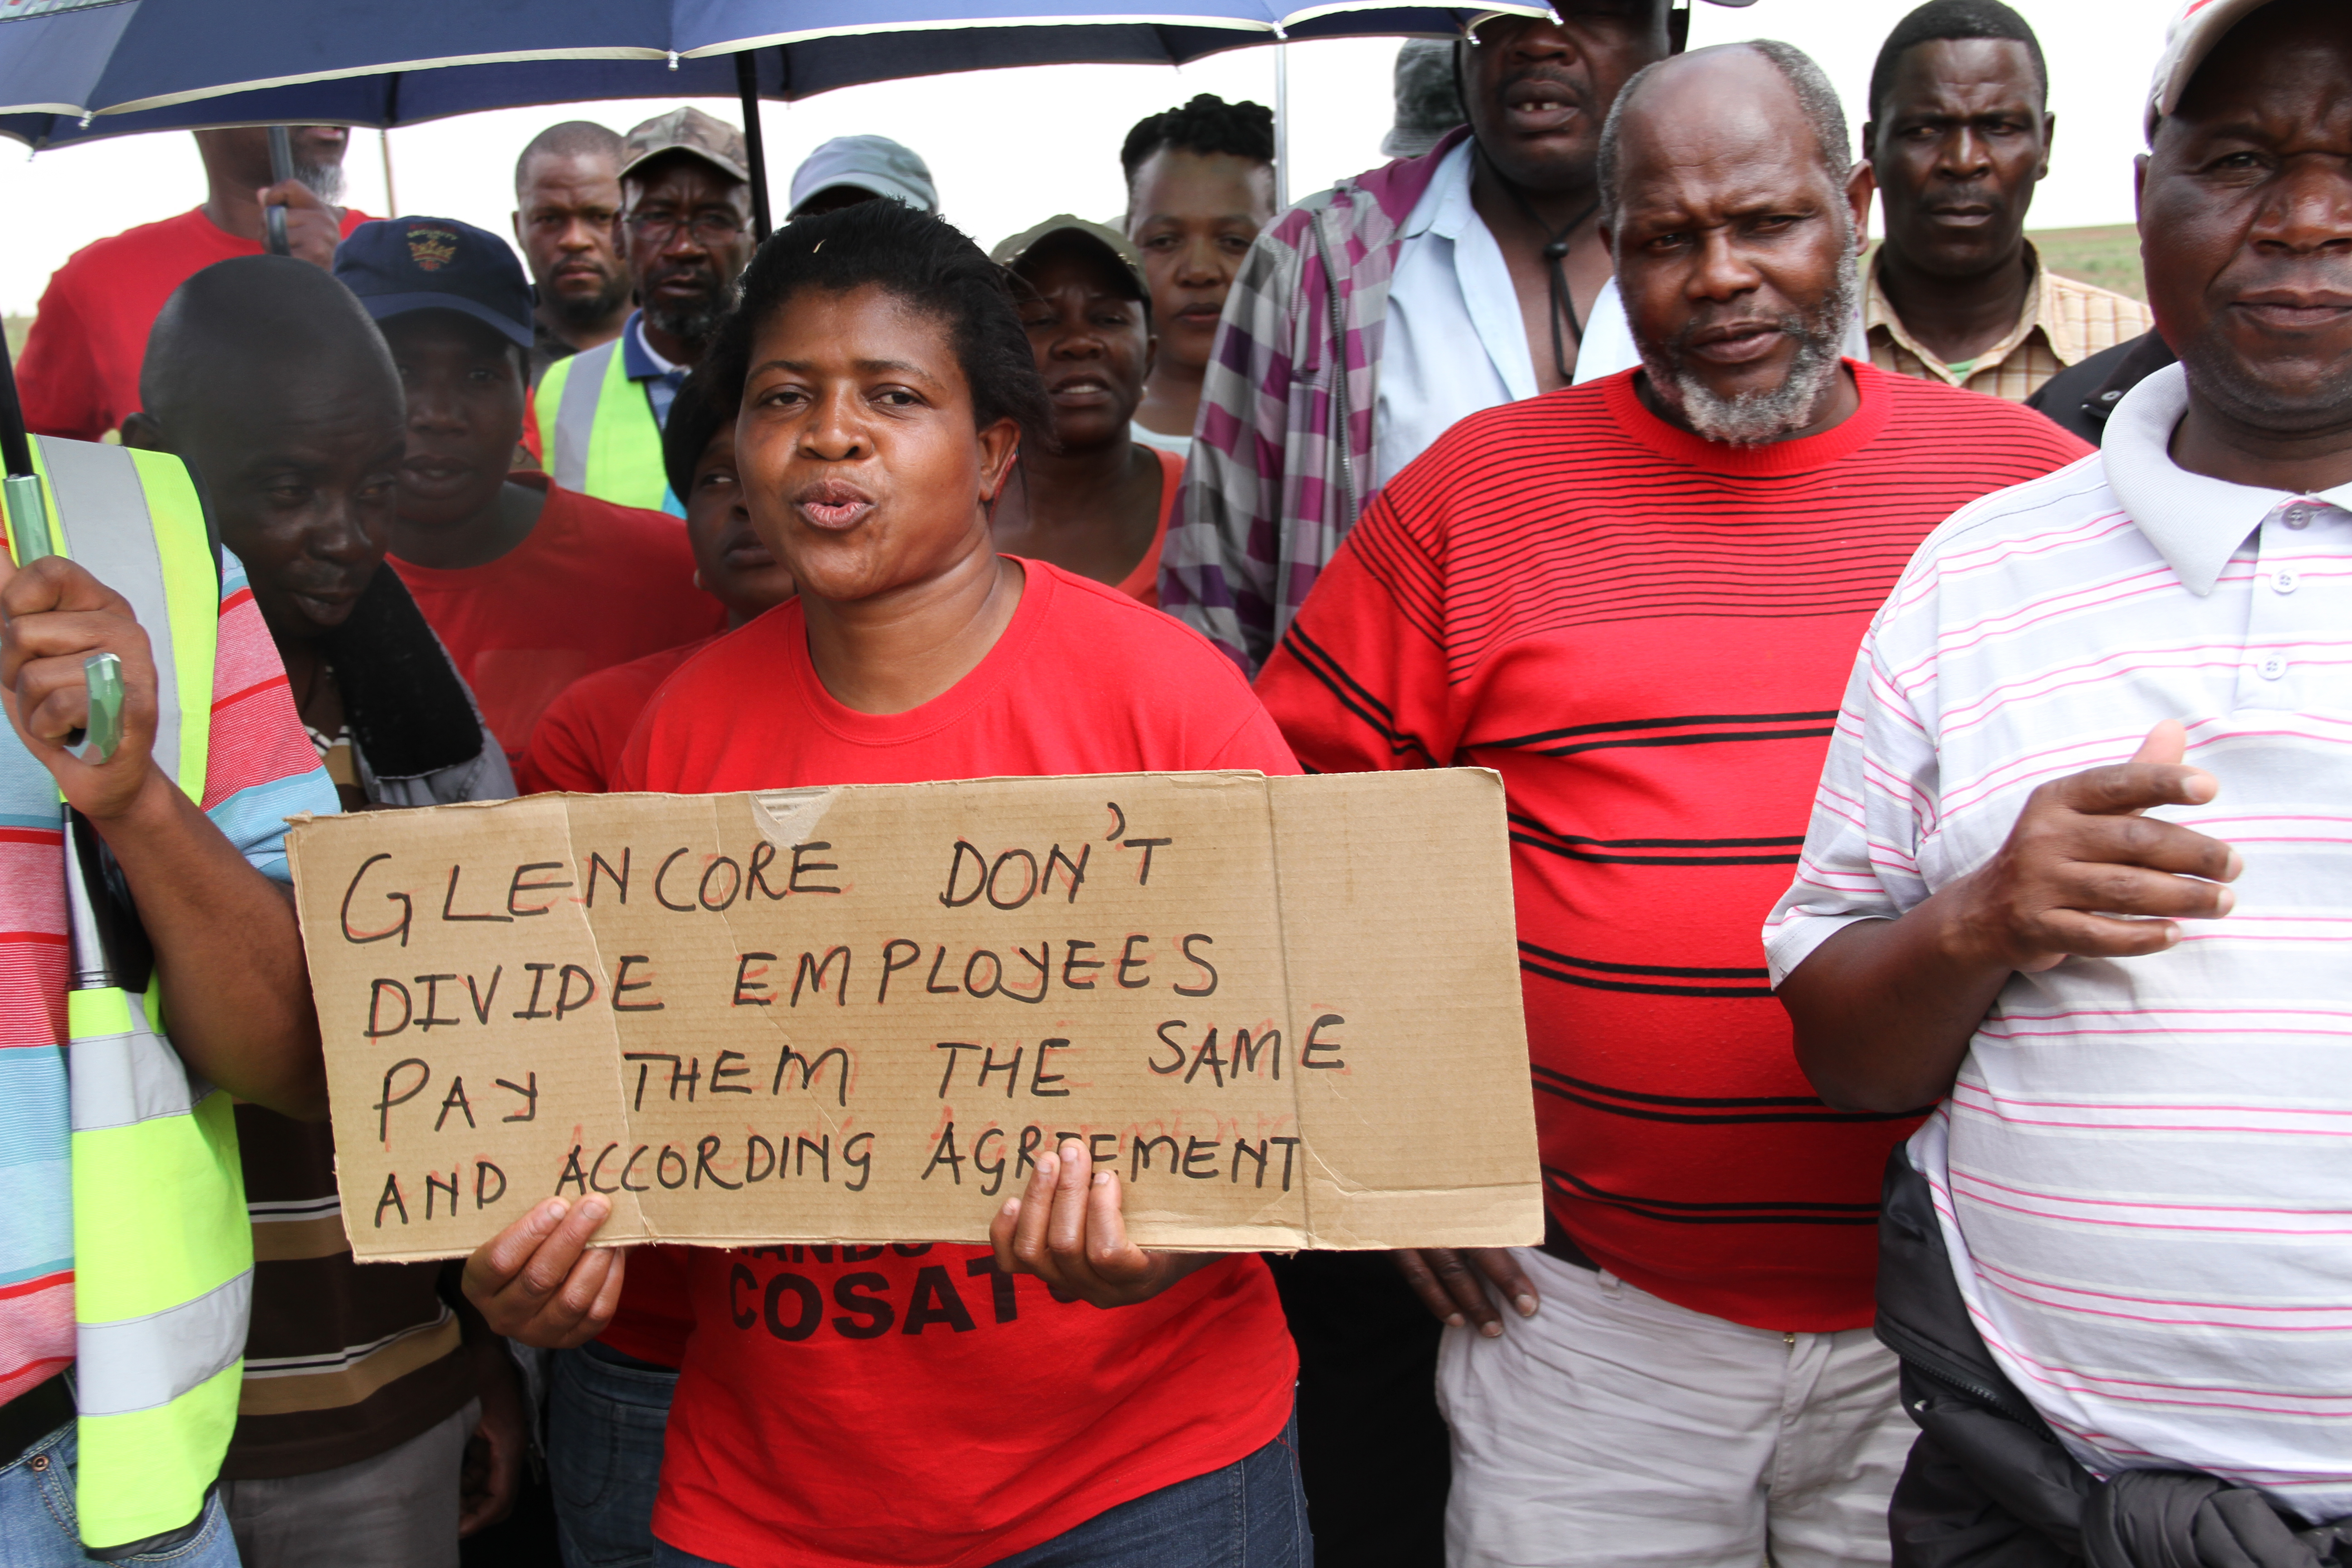 GLENCORE DON'T
DIVIDE EMPLOYEES
PAY THEM THE SAME
AND ACCORDING AGREEMENT
COSATU